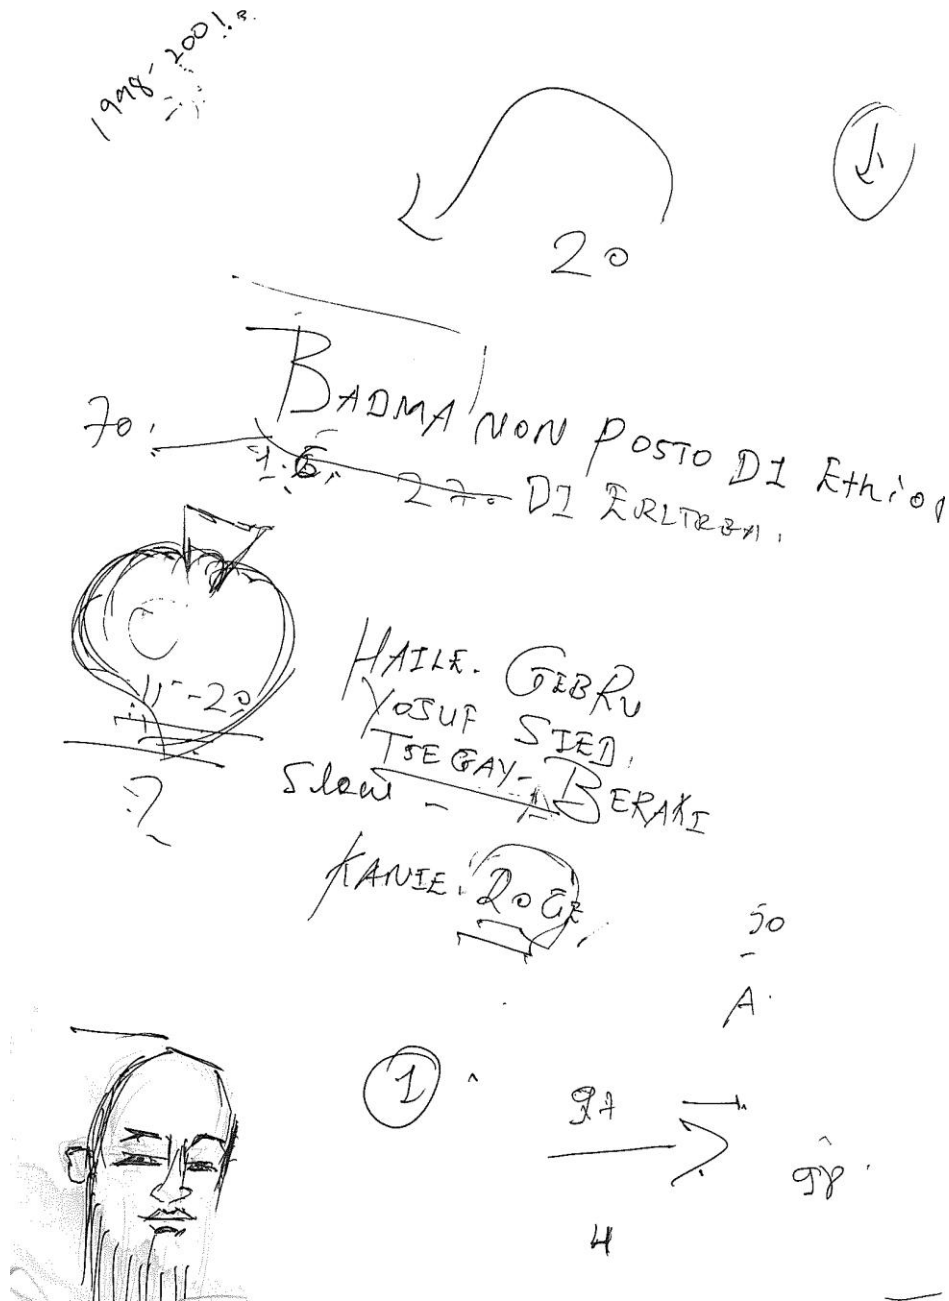 1998-2001.
1.
20
BADMA' NON POSTO DI Ethiop
70.
1.5. 27. DI ERITREA.
11-20
?
HAILE. GEBRU
YOSUF SIED.
TSEGAY-BERAKI
KANIE.
50
A.
1
97
98
4